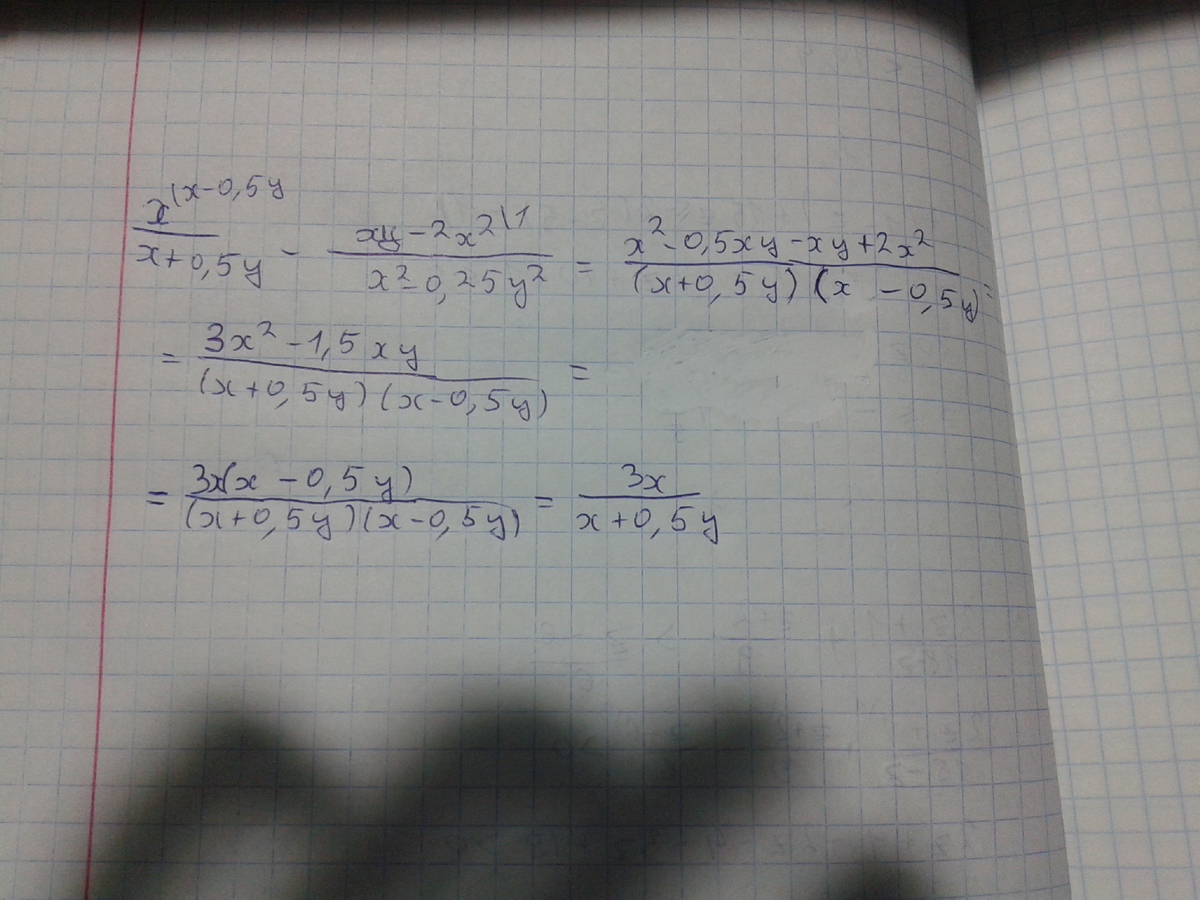 x^(x-0,5y / x+0,5y - xy-2x²\1 / x²-0,25y² = x²-0,5xy-xy+2x² / (x+0,5y)(x -0,5y) =
= 3x²-1,5xy / (x+0,5y)(x-0,5y) =
= 3x(x -0,5y) / (x+0,5y)(x-0,5y) = 3x / x+0,5y